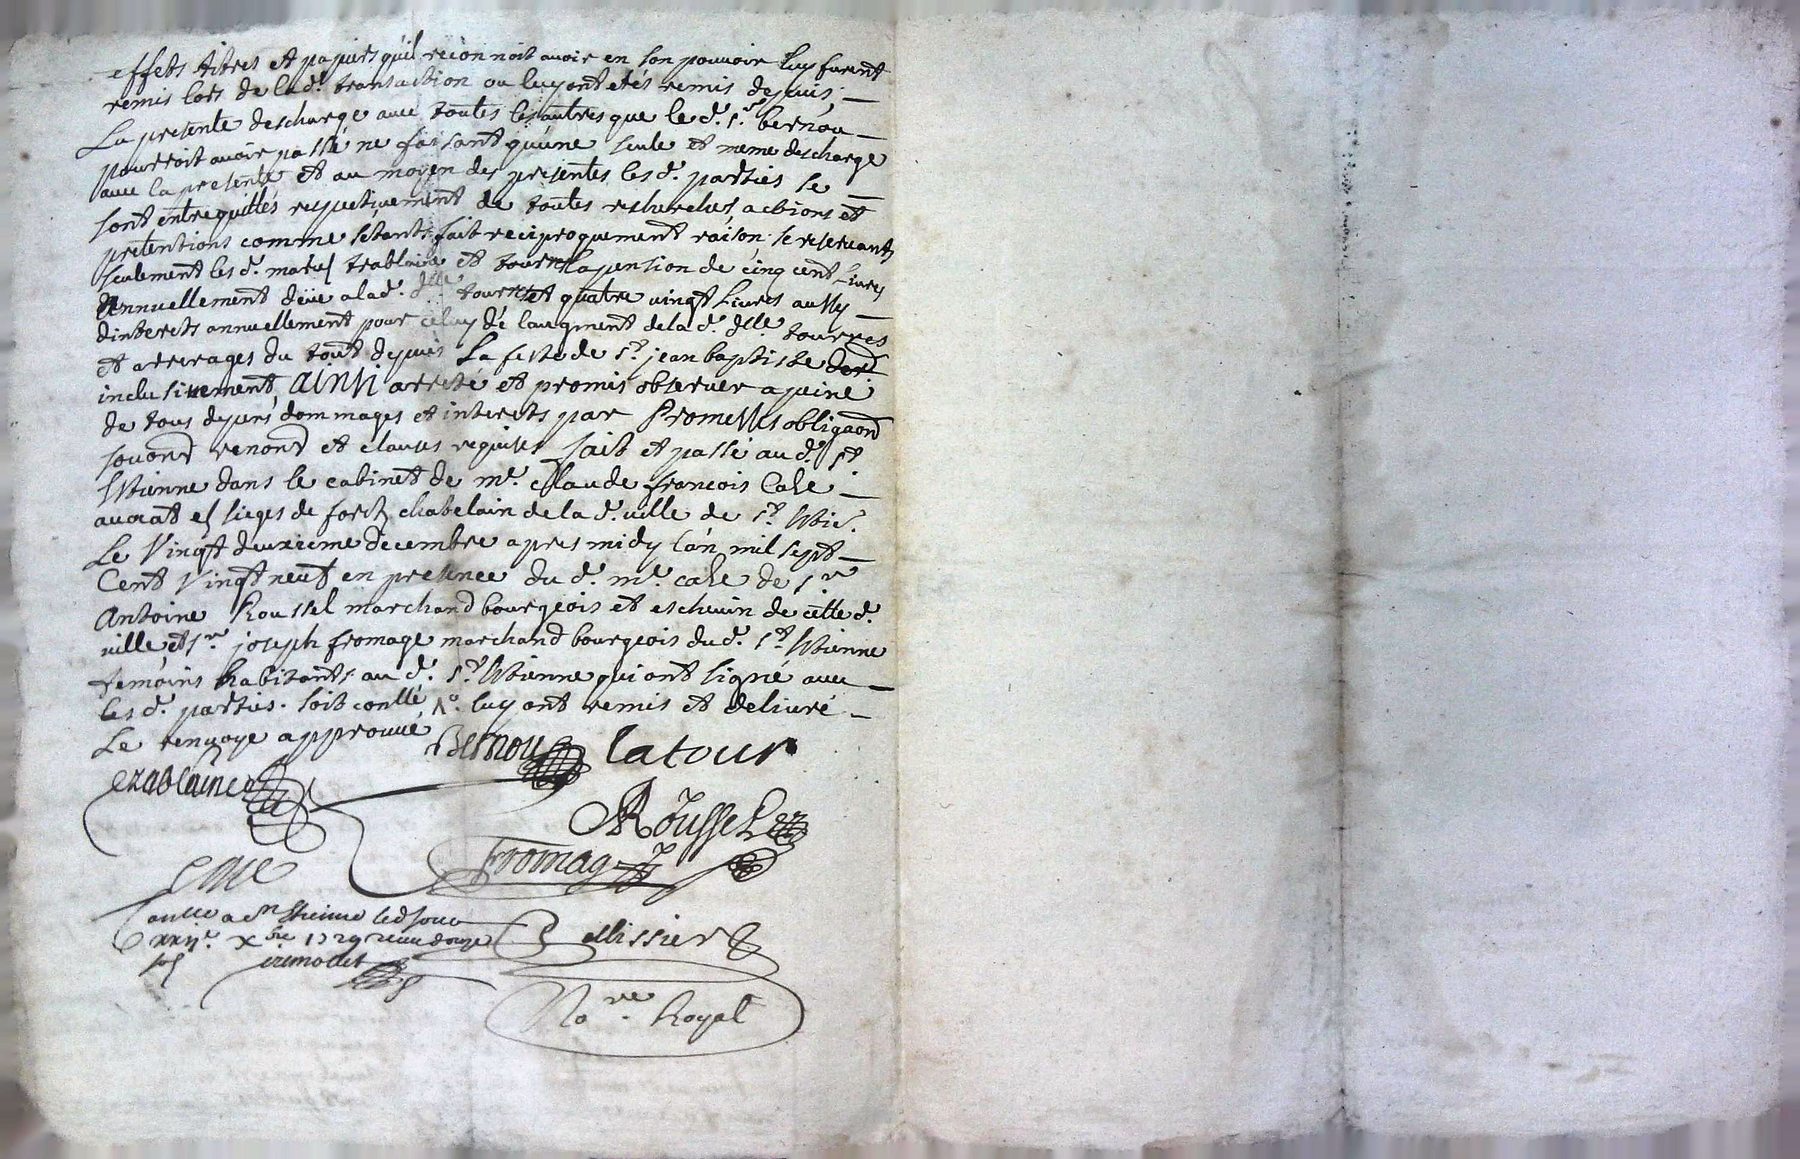 effets titres et papiers quil reconnoit avoir en son pouvoir luy furent
remis lors de lad.e transaction ou luy ont etés remis depuis,
La presente descharge avec toutes les autres que le d.t s.r bernou
pourroit avoir passé ne faisant qu'une seule et meme descharge
avec la presente et au moyen des presentes les d. parties se
sont entrequittés respectivement de toutes recherches, actions et
pretentions comme setants fait reciproquement raison, se reservants
seulement les d. mariés trablaine et tournes la pension de cinq cent Livres
Annuellement deüe a la d. d.lle tournes et quatre vingt Livres aussy
dinterets annuellement pour celuy de laugment de la d. d.lle tournes
et arrerages du tout depuis La feste de s.t jean baptiste der.
inclusivement, ainsi arreté et promis observer a peine
de tous depens, dommages et interets par Promesses obligaõns
soumõns renõns et clauses requises fait et passé au d. s.t
Etienne dans le cabinet de m.e Claude francois Case
avocat es sieges de forest chatelain de la d. ville de s.t Etie.
Le Vingt deuxieme decembre apres midy lan mil sept
Cent Vingt neuf en presence du d. m.e case de s.r
Antoine Roussel marchand bourgeois et eschevin de cette d.
ville et s.r joseph fromage marchand bourgeois du d. s.t Etienne
temoins habitants au d. s.t Etienne qui ont signé avec
les d. parties. soit conllé, luy ont remis et delivré
Le renvoye approuvé
Bernou latour
trablaine
ARoussel
fromage
Case
Conllé a S.t Etienne led jour
xxii.e x.bre 1729 receu douze
sols
Pellissier
No.re Royal